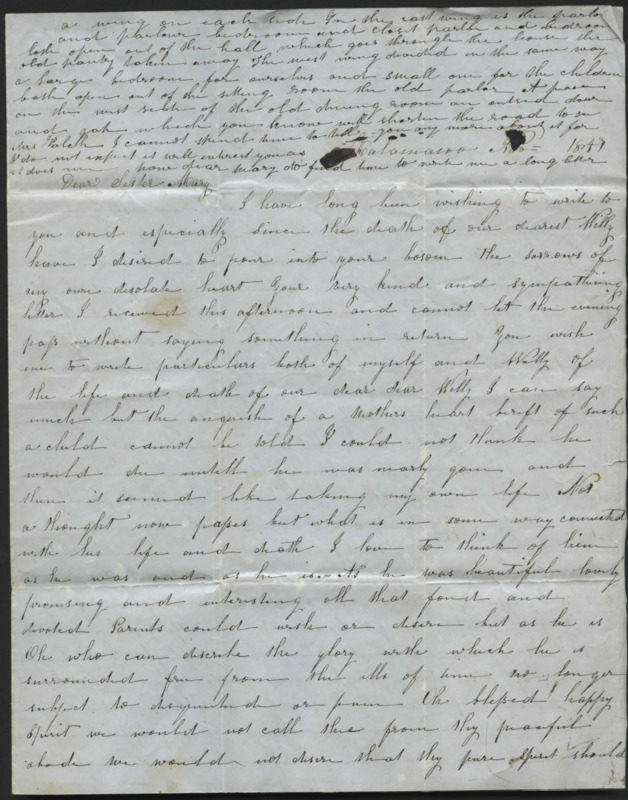 a wing on each side In the east wing is the parlor
and parlour bedroom and closet parlor and bedroom
both open out of the hall which goes through the house the
old pantry taken away The west wing divided in the same way
a large bedroom for ourselves and small one for the children
both open out of the sitting room the old parlor A piaza
on the west side of the old dining room an outside door
and which you know will shorten the road to see
Mrs I cannot spend time to tell you any more about it for
I do not expect it will interest you as Kalamazoo 1847
it does me now dear Mary do find time to write me a long letter
Dear Sister Mary
I have long been wishing to write to
you and especially since the death of our dearest Willy
have I desired to pour into your bosom the sorrows of
my own disolate heart Your very kind and sympathising
letter I received this afternoon and cannot let the evening
pass without saying something in return You wish
me to write particulars both of myself and Willy of
the life and death of our dear dear Willy I can say
much but the anguish of a Mothers heart bereft of such
a child cannot be told I could not think he
would die untill he was nearly gone and
then it seemed like taking my own life Not
a thought now passes but what is in some way connected
with his life and death I love to think of him
as he was and as he is As he was beautiful lovely
promising and interesting all that fond and
devoted Parents could wish or desire but as he is
Oh who can discribe the glory with which he is
surrounded free from the ills of time no longer
subject to disquietud or pain Oh blessed happy
Spirit we would not call thee from thy peaceful
abode we would not desire that thy pure spirit should